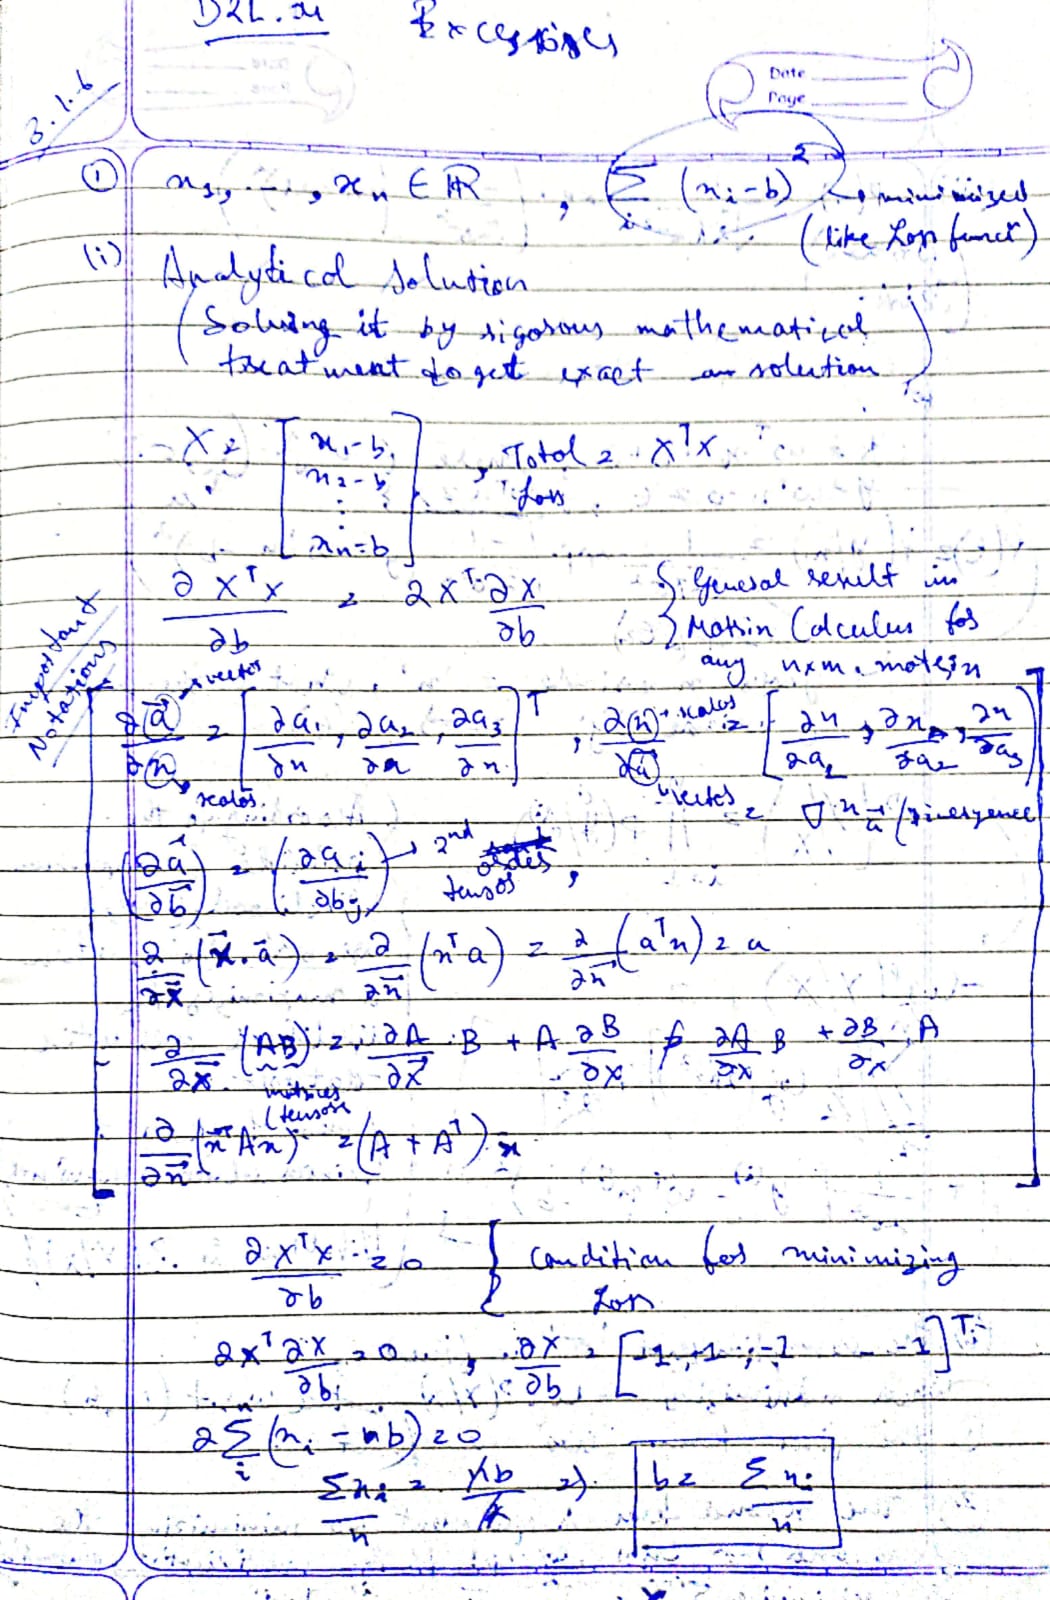 D2L.ai Excersises
Date
Page
3.1.6
① x₁, ..., xₙ ∈ ℝ , Σᵢ (xᵢ - b)² → minimized
(like Loss funcⁿ)
(i) Analytical solution
(Solving it by rigorous mathematical
treatment to get exact solution)
X = [x₁-b, x₂-b ⋮ xₙ-b] , Total Loss = XᵀX
∂XᵀX/∂b = 2Xᵀ ∂X/∂b { General result in
Matrix Calculus for
any n×m matrix
Important Notations
∂(a⃗)→vector/∂(x)→scalar = [∂a₁/∂x, ∂a₂/∂x, ∂a₃/∂x]ᵀ , ∂(x)→scalar/∂(a⃗)→vector = [∂x/∂a₁, ∂x/∂a₂, ∂x/∂a₃]
= ∇xₐ⃗ / divergence
(∂a⃗/∂b⃗) = (∂aᵢ/∂bⱼ) → 2nd order tensor ,
∂/∂x⃗ (x⃗.a⃗) = ∂/∂x⃗ (xᵀa) = ∂/∂x⃗ (aᵀx) = a
∂/∂x⃗ (AB) = ∂A/∂x⃗ . B + A ∂B/∂x ≠ ∂A/∂x B + ∂B/∂x . A
matrices
(tensors
∂/∂x⃗ (x⃗ᵀAx) = (A + Aᵀ).x
∴ ∂XᵀX/∂b = 0 { Condition for minimizing
Loss
2Xᵀ ∂X/∂b = 0 , ∂X/∂b = [-1, -1, -1 ... -1]ᵀ
2Σᵢ(xᵢ - nb) = 0
Σxᵢ/n = nb/n ⇒ b = Σxᵢ/n